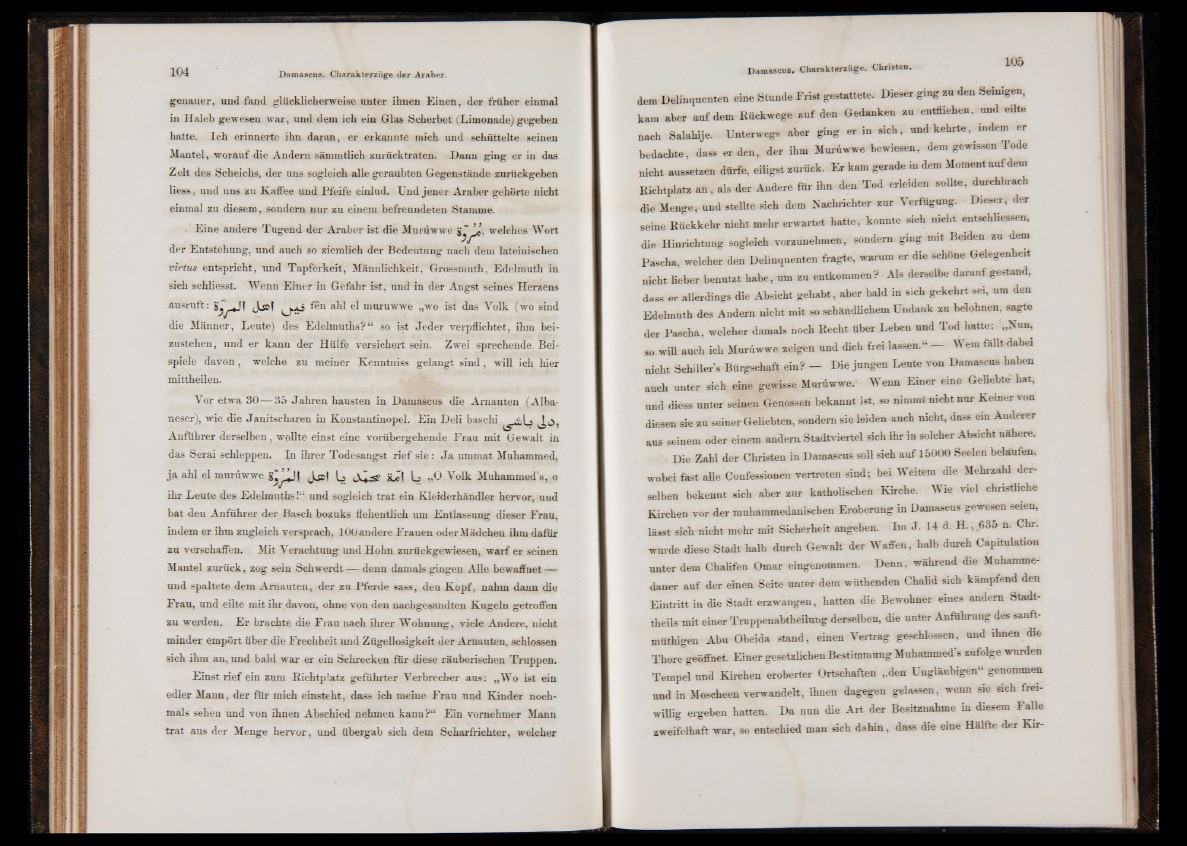 104
Damascus. Charakterzüge der Araber.
genauer, und fand glücklicherweise unter ihnen Einen, der früher einmal
in Haleb gewesen war, und dem ich ein Glas Scherbet (Limonade) gegeben
hatte. Ich erinnerte ihn daran, er erkannte mich und schüttelte seinen
Mantel, worauf die Andern sämmtlich zurücktraten. Dann ging er in das
Zelt des Scheichs, der uns sogleich alle geraubten Gegenstände zurückgeben
liess, und uns zu Kaffee und Pfeife einlud. Und jener Araber gehörte nicht
einmal zu diesem, sondern nur zu einem befreundeten Stamme.
Eine andere Tugend der Araber ist die Murúwwe مُروّة, welches Wort
der Entstehung, und auch so ziemlich der Bedeutung nach dem lateinischen
virtus entspricht, und Tapferkeit, Männlichkeit, Grossmuth, Edelmuth in
sich schliesst. Wenn Einer in Gefahr ist, und in der Angst seines Herzens
ausruft: فين اهل المروّة fên ahl el muruwwe „wo ist das Volk (wo sind
die Männer, Leute) des Edelmuths?“ so ist Jeder verpflichtet, ihm bei-
zustehen, und er kann der Hülfe versichert sein. Zwei sprechende Bei-
spiele davon, welche zu meiner Kenntniss gelangt sind, will ich hier
mittheilen.
Vor etwa 30—35 Jahren hausten in Damascus die Arnauten (Alba-
neser), wie die Janitscharen in Konstantinopel. Ein Deli baschi دلى باشى,
Anführer derselben, wollte einst eine vorübergehende Frau mit Gewalt in
das Serai schleppen. In ihrer Todesangst rief sie: Ja ummat Muhammed,
ja ahl el murúwwe يا امّة محمّد يا اهل المُروّة „O Volk Muhammed's, o
ihr Leute des Edelmuths!“ und sogleich trat ein Kleiderhändler hervor, und
bat den Anführer der Basch bozuks flehentlich um Entlassung dieser Frau,
indem er ihm zugleich versprach, 100 andere Frauen oder Mädchen ihm dafür
zu verschaffen. Mit Verachtung und Hohn zurückgewiesen, warf er seinen
Mantel zurück, zog sein Schwerdt — denn damals gingen Alle bewaffnet —
und spaltete dem Arnauten, der zu Pferde sass, den Kopf, nahm dann die
Frau, und eilte mit ihr davon, ohne von den nachgesandten Kugeln getroffen
zu werden. Er brachte die Frau nach ihrer Wohnung, viele Andere, nicht
minder empört über die Frechheit und Zügellosigkeit der Arnauten, schlossen
sich ihm an, und bald war er ein Schrecken für diese räuberischen Truppen.
Einst rief ein zum Richtplatz geführter Verbrecher aus: „Wo ist ein
edler Mann, der für mich einsteht, dass ich meine Frau und Kinder noch-
mals sehen und von ihnen Abschied nehmen kann?“ Ein vornehmer Mann
trat aus der Menge hervor, und übergab sich dem Scharfrichter, welcher
Damascus. Charakterzüge. Christen.
105
dem Delinquenten eine Stunde Frist gestattete. Dieser ging zu den Seinigen,
kam aber auf dem Rückwege auf den Gedanken zu entfliehen, und eilte
nach Salahije. Unterwegs aber ging er in sich, und kehrte, indem er
bedachte, dass er den, der ihm Murúwwe bewiesen, dem gewissen Tode
nicht aussetzen dürfe, eiligst zurück. Er kam gerade in dem Moment auf dem
Richtplatz an, als der Andere für ihn den Tod erleiden sollte, durchbrach
die Menge, und stellte sich dem Nachrichter zur Verfügung. Dieser, der
seine Rückkehr nicht mehr erwartet hatte, konnte sich nicht entschliessen,
die Hinrichtung sogleich vorzunehmen, sondern ging mit Beiden zu dem
Pascha, welcher den Delinquenten fragte, warum er die schöne Gelegenheit
nicht lieber benutzt habe, um zu entkommen? Als derselbe darauf gestand,
dass er allerdings die Absicht gehabt, aber bald in sich gekehrt sei, um den
Edelmuth des Andern nicht mit so schändlichem Undank zu belohnen, sagte
der Pascha, welcher damals noch Recht über Leben und Tod hatte: „Nun,
so will auch ich Murúwwe zeigen und dich frei lassen.“ — Wem fällt dabei
nicht Schiller's Bürgschaft ein? — Die jungen Leute von Damascus haben
auch unter sich eine gewisse Murúwwe. Wenn Einer eine Geliebte hat,
und diess unter seinen Genossen bekannt ist, so nimmt nicht nur Keiner von
diesen sie zu seiner Geliebten, sondern sie leiden auch nicht, dass ein Anderer
aus seinem oder einem andern Stadtviertel sich ihr in solcher Absicht nähere.
Die Zahl der Christen in Damascus soll sich auf 15000 Seelen belaufen,
wobei fast alle Confessionen vertreten sind; bei Weitem die Mehrzahl der-
selben bekennt sich aber zur katholischen Kirche. Wie viel christliche
Kirchen vor der muhammedanischen Eroberung in Damascus gewesen seien,
lässt sich nicht mehr mit Sicherheit angeben. Im J. 14 d. H., 635 n. Chr.
wurde diese Stadt halb durch Gewalt der Waffen, halb durch Capitulation
unter dem Chalifen Omar eingenommen. Denn, während die Muhamme-
daner auf der einen Seite unter dem wüthenden Chalid sich kämpfend den
Eintritt in die Stadt erzwangen, hatten die Bewohner eines andern Stadt-
theils mit einer Truppenabtheilung derselben, die unter Anführung des sanft-
müthigen Abu Obeida stand, einen Vertrag geschlossen, und ihnen die
Thore geöffnet. Einer gesetzlichen Bestimmung Muhammed's zufolge wurden
Tempel und Kirchen eroberter Ortschaften „den Ungläubigen“ genommen
und in Moscheen verwandelt, ihnen dagegen gelassen, wenn sie sich frei-
willig ergeben hatten. Da nun die Art der Besitznahme in diesem Falle
zweifelhaft war, so entschied man sich dahin, dass die eine Hälfte der Kir-